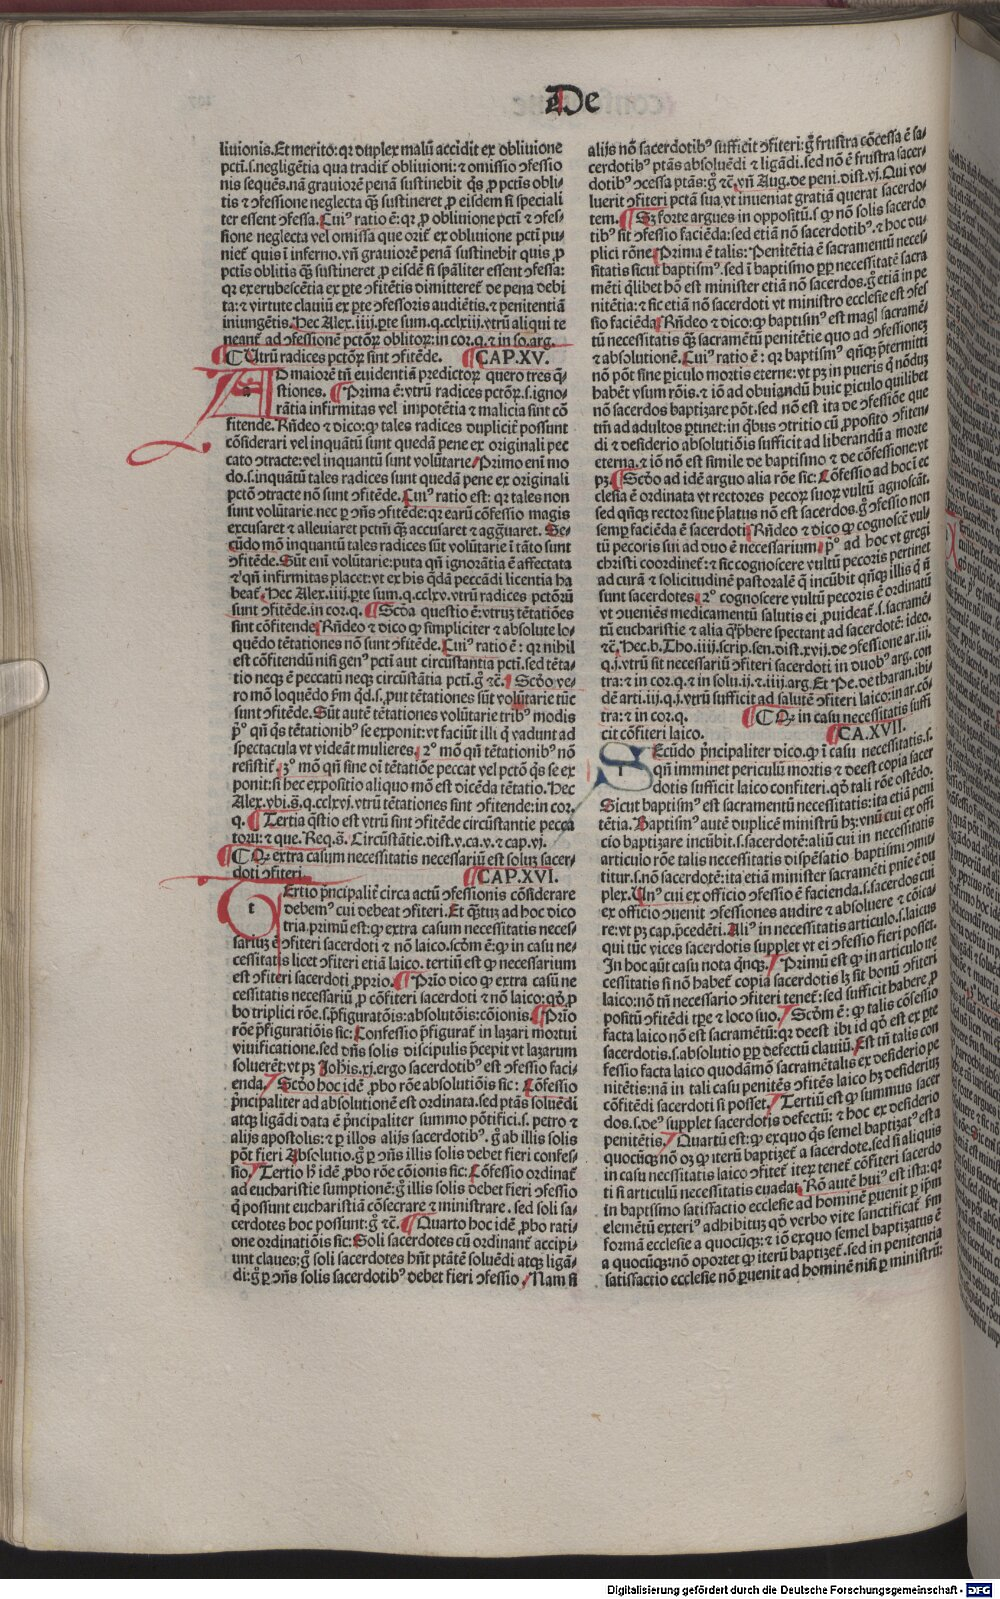 De
liuionis. Et merito: qꝛ duplex malũ accidit ex obliuione
pcti .s. negligẽtia qua tradit᷑ obliuioni: ⁊ omissio ↄfessio
nis sequẽs. nã grauiorẽ penã sustinebit q̃s ꝓ pctis obli-
tis ⁊ ↄfessione neglecta q̃ꝫ sustineret ꝓ eisdem si speciali
ter essent ↄfessa. Cuiꝰ ratio ẽ: qꝛ ꝓ obliuione pcti ⁊ ↄfes-
sione neglecta vel omissa que orit᷑ ex obliuione pcti pu-
niet᷑ quis ĩ inferno. vñ grauiorẽ penã sustinebit quis ꝓ
pctis oblitis q̃ꝫ sustineret ꝓ eisdẽ si sp̃aliter essent ↄfessa:
qꝛ erubescẽtia ex ꝑte ↄfitẽtis dimitteret᷑ de pena debi
ta: ⁊ virtute clauiũ ex ꝑte ↄfessoris audiẽtis. ⁊ penitentiã
iniungẽtis. Hec Alex. iiij. ꝑte sum. q. cclxiij. vtrũ aliqui te
neant᷑ ad ↄfessionẽ pctõꝝ oblitoꝝ: in cor. q. ⁊ in so. arg.
¶ Utrũ radices pctõꝝ sint ↄfitẽde. CAP. XV.
AD maiorẽ tñ euidentiã predictoꝝ quero tres q̃-
stiones. ¶ Prima ẽ: vtrũ radices pctõꝝ .s. igno-
rãtia infirmitas vel impotẽtia ⁊ malicia sint cõ
fitende. Rñdeo ⁊ dico: qꝙ tales radices duplicit᷑ possunt
cõsiderari vel inquãtũ sunt quedã pene ex originali pec
cato ↄtracte: vel inquantũ sunt volũtarie. Primo eni mo
do .s. inquãtũ tales radices sunt quedã pene ex originali
pctõ ↄtracte nõ sunt ↄfitẽde. Cuiꝰ ratio est: qꝛ tales non
sunt volũtarie. nec ꝑ ↄñs ↄfitẽde: qꝛ earũ cõfessio magis
excusaret ⁊ alleuiaret pctm̃ q̃ꝫ accusaret ⁊ agg̃uaret. Se-
cũdo mõ inquantũ tales radices sũt volũtarie ĩ tãto sunt
ↄfitẽde. Sũt eni voluntarie: puta qñ ignorãtia ẽ affectata
⁊ qñ infirmitas placet: vt ex his q̃dã peccãdi licentia ha
beat᷑. Hec Alex. iiij. ꝑte sum. q. cclxv. vtrũ radices pctõrũ
sunt ↄfitẽde. in cor. q. ¶ Scđa questio ẽ: vtruꝫ tẽtatiões
sint cõfitende. Rñdeo ⁊ dico ꝙ simpliciter ⁊ absolute lo-
quẽdo tẽtationes nõ sunt ↄfitẽde. Cuiꝰ ratio ẽ: qꝛ nihil
est cõfitendũ nisi genꝰ pcti aut circũstantia pcti. sed tẽta-
tio neqꝫ ẽ peccatũ neqꝫ circũstãtia pcti. g̃ ⁊c̃. Scđo ve-
ro mõ loquẽdo fm̃ q̃d .s. put tẽtationes sũt volũtarie tũc
sunt ↄfitẽde. Sũt autẽ tẽtationes volũtarie tribꝰ modis
pº qñ q̃s tẽtationibꝰ se exponit: vt faciũt illi q̃ vadunt ad
spectacula vt videãt mulieres. 2º mõ qñ tẽtationibꝰ nõ
resistit᷑. 3º mõ qñ sine oĩ tẽtatiõe peccat vel pctõ q̃s se ex
ponit: si hec expositio aliquo mõ est dicẽda tẽtatio. Hec
Alex. vbi .s̃. q. cclxvj. vtrũ tẽtationes sint ↄfitende: in cor.
q. ¶ Tertia q̃stio est vtrũ sint ↄfitẽde circũstantie pecca
torũ: ⁊ que. Req. s̃. Circũstãtie. dist. v. ca. v. ⁊ cap. vj.
¶ Qꝙ extra casum necessitatis necessariũ est soluꝫ sacer-
doti ↄfiteri. CAP. XVI.
TErtio p̃ncipalit᷑ circa actũ ↄfessionis cõsiderare
debemꝰ cui debeat ↄfiteri. Et q̃tuꝫ ad hoc dico
tria. primũ est: ꝙ extra casum necessitatis neces-
sariuꝫ ẽ ↄfiteri sacerdoti ⁊ nõ laico. scđm ẽ: ꝙ in casu ne-
cessitatis licet ↄfiteri etiã laico. tertiũ est ꝙ necessarium
est ↄfiteri sacerdoti ꝓprio. ¶ Prĩo dico ꝙ extra casũ ne
cessitatis necessariũ ꝓ cõfiteri sacerdoti ⁊ nõ laico: qđ ꝓ
bo triplici rõe .s. p̃figuratiõis: absolutiõis: cõionis. ¶ Prĩo
rõe p̃figuratiõis sic: Confessio p̃figurat᷑ in lazari mortui
viuificatione. sed dñs solis discipulis p̃cepit vt lazarum
soluerẽt: vt pꝫ Johis. xj. ergo sacerdotibꝰ est ↄfessio faci-
enda. Scđo hoc idẽ ꝓbo rõe absolutiõis sic: Cõfessio
p̃ncipaliter ad absolutionẽ est ordinata. sed ptãs soluẽdi
atqꝫ ligãdi data ẽ p̃ncipaliter summo põtifici .s. petro ⁊
alijs apostolis: ⁊ ꝑ illos alijs sacerdotibꝰ. g̃ ab illis solis
põt fieri Absolutio. g̃ ꝑ ↄñs illis solis debet fieri confes-
sio. Tertio h̃ idẽ ꝓbo rõe cõionis sic: Cõfessio ordinat᷑
ad eucharistie sumptionẽ: g̃ illis solis debet fieri ↄfessio
q̃ possunt eucharistiã cõsecrare ⁊ ministrare. sed soli sa-
cerdotes hoc possunt: g̃ ⁊c̃. ¶ Quarto hoc idẽ ꝓbo rati-
one ordinatiõnis sic: Soli sacerdotes cũ ordinant᷑ accipi-
unt claues: g̃ soli sacerdotes hñt ptãtẽ soluẽdi atqꝫ ligã-
di: g̃ ꝑ ↄñs solis sacerdotibꝰ debet fieri ↄfessio. Nam si
alijs nõ sacerdotibꝰ sufficit ↄfiteri: g̃ frustra cõcessa ẽ sa-
cerdotibꝰ ptãs absoluẽdi ⁊ ligãdi. sed nõ ẽ frustra sacer-
dotibꝰ ↄcessa ptãs: g̃ ⁊c̃. vñ Aug. de peni. dist. vj. Qui vo-
luerit ↄfiteri pctã sua vt inueniat gratiã querat sacerdo-
tem. ¶ Sꝫ forte argues in oppositũ .s. ꝙ nõ solis sacerdo
tibꝰ sit ↄfessio faciẽda: sed etiã nõ sacerdotibꝰ. ⁊ hoc du-
plici rõne. Prima ẽ talis: Penitẽtia ẽ sacramentũ neces-
sitatis sicut baptismꝰ. sed ĩ baptismo ꝓp̃ necessitatẽ sacra
mẽti q̃libet hõ est minister etiã nõ sacerdos. g̃ etiã in pe
nitẽtia: ⁊ sic etiã nõ sacerdoti vt ministro ecclesie est ↄfes
sio faciẽda. Rñdeo ⁊ dico: ꝙ baptismꝰ est magl̃ sacramẽ-
tũ necessitatis q̃ꝫ sacramẽtũ penitẽtie quo ad ↄfessioneꝫ
⁊ absolutionẽ. Cuiꝰ ratio ẽ: qꝛ baptismꝰ qñqꝫ p̃termitti
nõ põt sine ꝑiculo mortis eterne: vt pꝫ in pueris q̃ nõduꝫ
habẽt vsum rõis. ⁊ iõ ad obuiandũ huic ꝑiculo quilibet
nõ sacerdos baptiꝫare põt. sed nõ est ita de ↄfessiõe que
tm̃ ad adultos ꝑtinet: in q̃bus ↄtritio cũ ꝓposito ↄfiten-
di ⁊ desiderio absolutiõis sufficit ad liberandũ a morte
eterna. ⁊ iõ nõ est simile de baptismo ⁊ de cõfessione: vt
pꝫ. ¶ Scđo ad idẽ arguo alia rõe sic: Cõfessio ad hoc ĩ ec
clesia ẽ ordinata vt rectores pecoꝝ suoꝝ vultũ agnoscãt.
sed qñqꝫ rector siue p̃latus nõ est sacerdos. g̃ ↄfessio non
semꝑ faciẽda ẽ sacerdoti. Rñdeo ⁊ dico ꝙ cognoscẽ vul
tũ pecoris sui ad duo ẽ necessarium. pº ad hoc vt gregi
christi coordinet᷑: ⁊ sic cognoscere vultũ pecoris pertinet
ad curã ⁊ solicitudinẽ pastoralẽ q̃ incũbit qñqꝫ illis q̃ ñ
sunt sacerdotes. 2º cognoscere vultũ pecoris ẽ ordinatũ
vt ↄueniẽs medicamentũ salutis ei ꝓuideat᷑ .s. sacramẽ
tũ eucharistie ⁊ alia q̃ p̃bere spectant ad sacerdotẽ: ideo.
⁊c̃. Hec. b. Tho. iiij. scrip. sen. dist. xvij. de ↄfessione ar. iij.
q. j. vtrũ sit necessariũ ↄfiteri sacerdoti in duobꝰ arg. con
tra: ⁊ in cor. q. ⁊ in solu. ij. ⁊ iiij. arg. Et Pe. de tharan. ibi
dẽ arti. iij. q. j. vtrũ sufficit ad salutẽ ↄfiteri laico: in ar. cõ
tra: ⁊ in cor. q. ¶ Qꝙ in casu necessitatis suffi
cit cõfiteri laico. CA. XVII.
SEcũdo p̃ncipaliter dico. ꝙ ĩ casu necessitatis .s.
qñ imminet periculũ mortis ⁊ deest copia sacer
dotis sufficit laico confiteri. qđ tali rõe ostẽdo.
Sicut baptismꝰ est sacramentũ necessitatis: ita etiã peni
tẽtia. Baptismꝰ autẽ duplicẽ ministrũ hꝫ: vnũ cui ex offi
cio baptiꝫare incũbit .s. sacerdotẽ: aliũ cui in necessitatis
articulo rõe talis necessitatis dispẽsatio baptismi ↄmit
titur .s. nõ sacerdotẽ: ita etiã minister sacramẽti pnĩe ẽ du
plex. Unꝰ cui ex officio ↄfessio ẽ facienda .s. sacerdos cui
ex officio ↄuenit ↄfessiones audire ⁊ absoluere ⁊ cõica-
re: vt pꝫ cap. p̃cedẽti. Aliꝰ in necessitatis articulo .s. laicus
qui tũc vices sacerdotis supplet vt ei ↄfessio fieri posset.
In hoc aũt casu nota q̃nqꝫ. Primũ est ꝙ in articulo ne
cessitatis si nõ habet᷑ copia sacerdotis lꝫ sit bonũ ↄfiteri
laico: nõ tñ necessario ↄfiteri tenet᷑: sed sufficit habere ꝓ
positũ ↄfitẽdi tꝑe ⁊ loco suo. Scđm ẽ: ꝙ talis cõfessio
facta laico non est sacramẽtũ: qꝛ deest ibi id qđ est ex ꝑte
sacerdotis .s. absolutio ꝓp̃ defectũ clauiũ. Est tñ talis con
fessio facta laico quodãmõ sacramẽtalis ex desiderio pe
nitẽtis: nã in tali casu penitẽs ↄfitẽs laico hꝫ desideriuꝫ
cõfitẽdi sacerdoti si posset. Tertiũ est ꝙ summus sacer
dos .s. deꝰ supplet sacerdotis defectũ: ⁊ hoc ex desiderio
penitẽtis. Quartũ est: ꝙ exquo q̃s semel baptiꝫatꝰ est a
quocũqꝫ nõ oꝫ ꝙ iterũ baptiꝫet᷑ a sacerdote. sed si aliquis
in casu necessitatis laico ↄfitet᷑ iteꝝ tenet᷑ cõfiteri sacerdo
ti si articulũ necessitatis euadat. Rõ autẽ huiꝰ est ista: qꝛ
in baptismo satisfactio ecclesie ad hominẽ ꝑuenit ꝑ ip̃m
elemẽtũ exteriꝰ adhibituꝫ qđ verbo vite sanctificat᷑ fm̃
formã ecclesie a quocũqꝫ: ⁊ iõ exquo semel baptiꝫatus ẽ
a quocũqꝫ: nõ oportet ꝙ iterũ baptiꝫet᷑. sed in penitentia
satisfactio ecclesie nõ ꝑuenit ad hominẽ nisi ꝑ ministrũ:
Digitalisierung gefördert durch die Deutsche Forschungsgemeinschaft - DFG